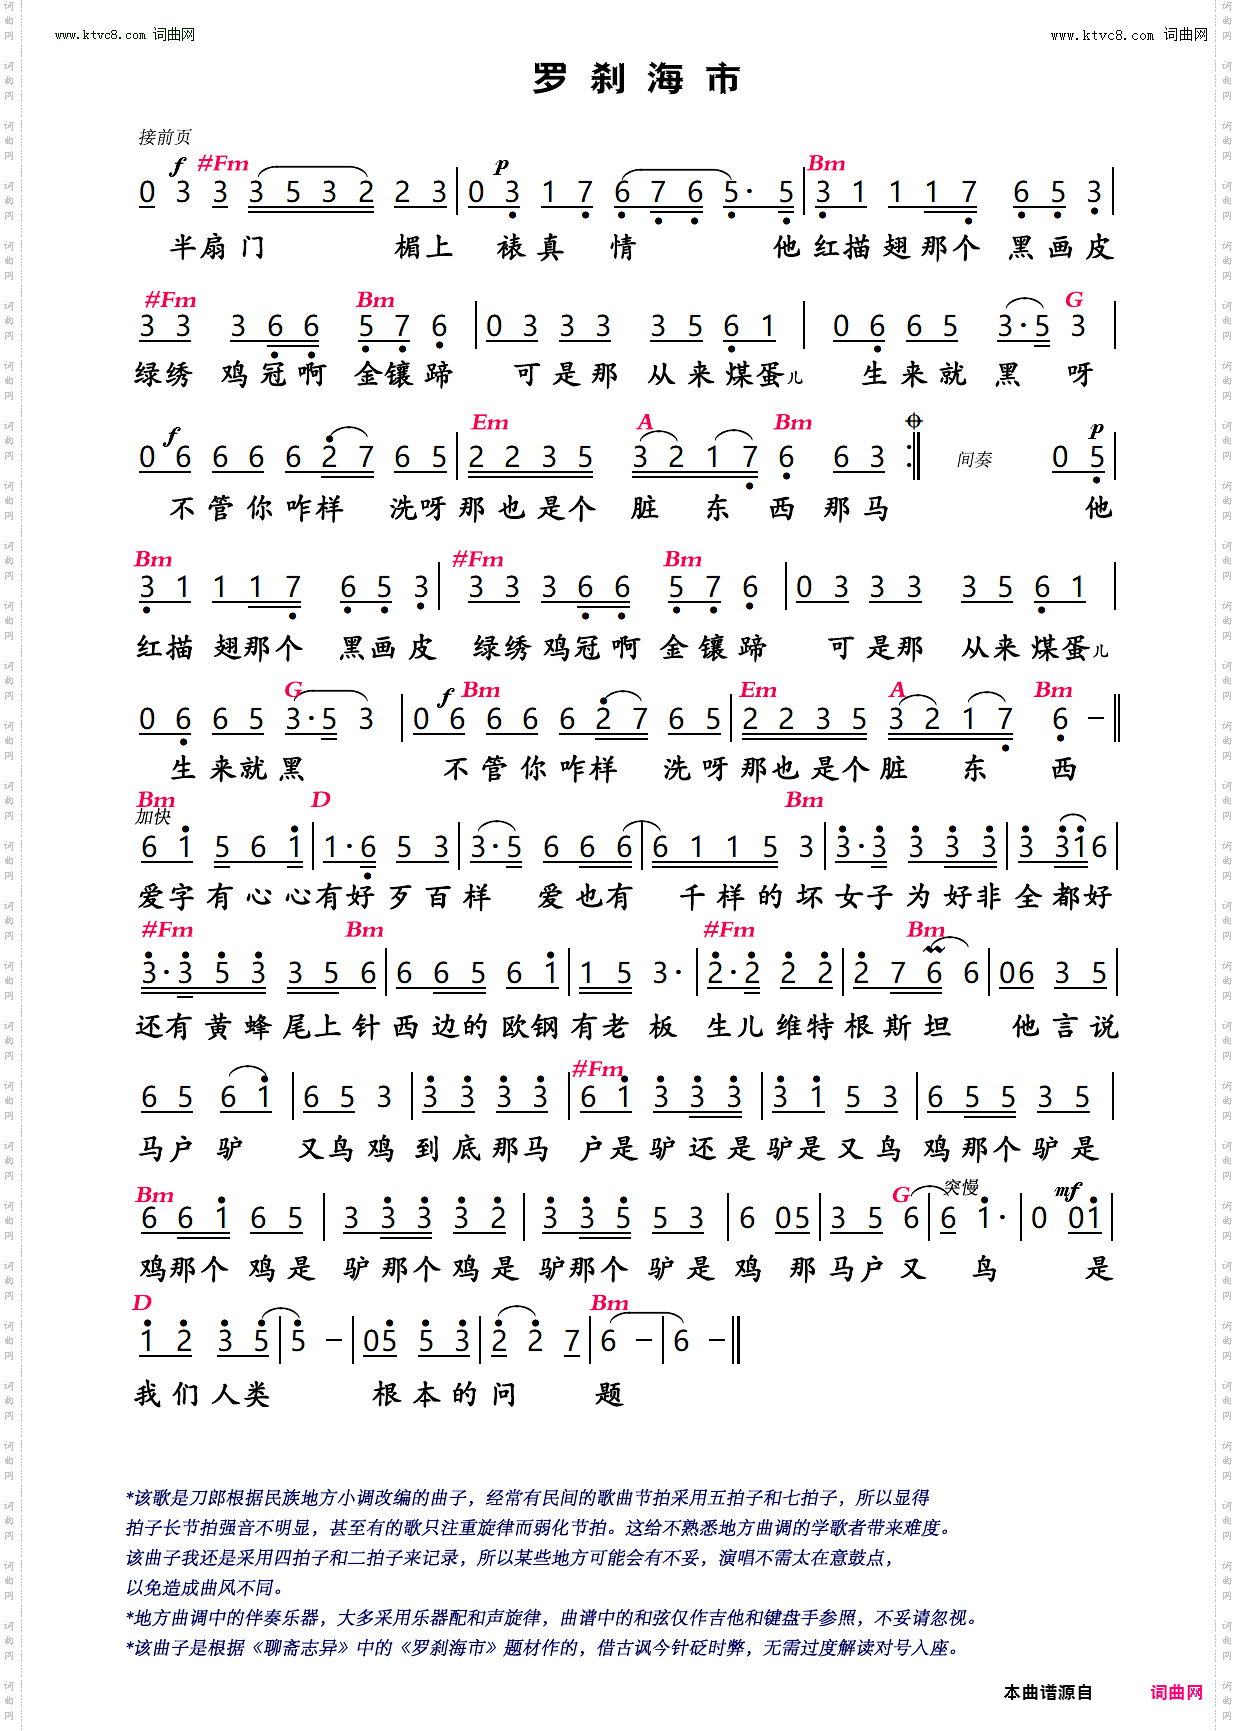 www.ktvc8.com 词曲网
www.ktvc8.com 词曲网
罗刹海市
接前页
f #Fm p Bm
0 3 3 3 5 3 2 2 3 | 0 3 1 7 6 7 6 5· 5 | 3 1 1 1 7 6 5 3 |
半扇门 楣上 裱真情 他红描翅那个黑画皮
#Fm Bm G
3 3 3 6 6 5 7 6 | 0 3 3 3 3 5 6 1 | 0 6 6 5 3·5 3 |
绿绣鸡冠啊金镶蹄 可是那从来煤蛋儿 生来就黑呀
f Em A Bm p
0 6 6 6 6 2 7 6 5 | 2 2 3 5 3 2 1 7 6 6 3 :|| 间奏 0 5 |
不管你咋样 洗呀那也是个脏东西那马 他
Bm #Fm Bm
3 1 1 1 7 6 5 3 | 3 3 3 6 6 5 7 6 | 0 3 3 3 3 5 6 1 |
红描翅那个黑画皮 绿绣鸡冠啊金镶蹄 可是那从来煤蛋儿
G f Bm Em A Bm
0 6 6 5 3·5 3 | 0 6 6 6 6 2 7 6 5 | 2 2 3 5 3 2 1 7 6 – ||
生来就黑 不管你咋样 洗呀那也是个脏东西
Bm D Bm
加快
6 1 5 6 1 | 1·6 5 3 | 3·5 6 6 6 | 6 1 1 5 3 | 3·3 3 3 3 | 3 3 1 6 |
爱字有心心有好歹百样 爱也有千样的坏女子为好非全都好
#Fm Bm #Fm Bm
3·3 5 3 3 5 6 | 6 6 5 6 1 | 1 5 3· | 2·2 2 2 | 2 7 6 6 | 0 6 3 5 |
还有黄蜂尾上针西边的欧钢有老板 生儿维特根斯坦 他言说
#Fm
6 5 6 1 | 6 5 3 | 3 3 3 3 | 6 1 3 3 3 | 3 1 5 3 | 6 5 5 3 5 |
马户驴 又鸟鸡到底那马户是驴还是驴是又鸟鸡那个驴是
Bm G 突慢 mf
6 6 1 6 5 | 3 3 3 3 2 | 3 3 5 5 3 | 6 0 5 | 3 5 6 | 6 1· | 0 0 1 |
鸡那个鸡是驴那个鸡是驴那个驴是鸡那马户又鸟 是
D Bm
1 2 3 5 | 5 – | 0 5 5 3 | 2 2 7 | 6 – | 6 – ||
我们人类 根本的问题
*该歌是刀郎根据民族地方小调改编的曲子，经常有民间的歌曲节拍采用五拍子和七拍子，所以显得
拍子长节拍强音不明显，甚至有的歌只注重旋律而弱化节拍。这给不熟悉地方曲调的学歌者带来难度。
该曲子我还是采用四拍子和二拍子来记录，所以某些地方可能会有不妥，演唱不需太在意鼓点，
以免造成曲风不同。
*地方曲调中的伴奏乐器，大多采用乐器配和声旋律，曲谱中的和弦仅作吉他和键盘手参照，不妥请忽视。
*该曲子是根据《聊斋志异》中的《罗刹海市》题材作的，借古讽今针砭时弊，无需过度解读对号入座。
本曲谱源自 词曲网